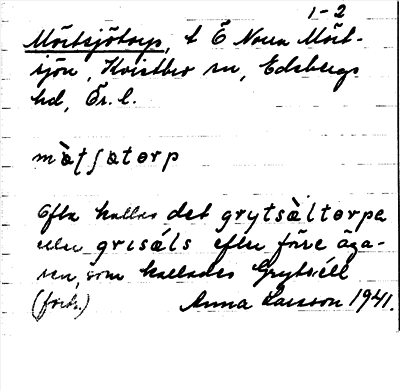 1-2
Mörtsjötorp, t Ö Norra Mört-
sjön, Kvistbro sn, Edsbergs
hd, Ör. l.
mὰʈʃatorp
Ofta kallas det grytsὰltorpa
eller grisáls efter förre äga-
ren, som kallades Grytsäll
(fork.) Anna Larsson 1941.